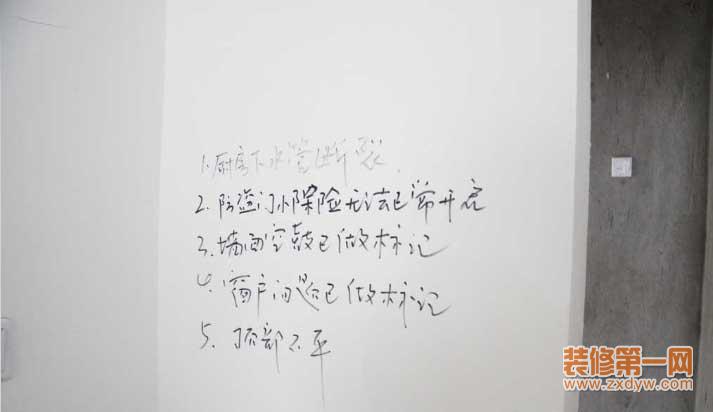 1.厨房下水管断裂.
2.防盗门小保险无法正常开启
3.墙面空鼓已做标记
4.窗户问题已做标记
5.顶部不平
装修第一网
www.zxdyw.com